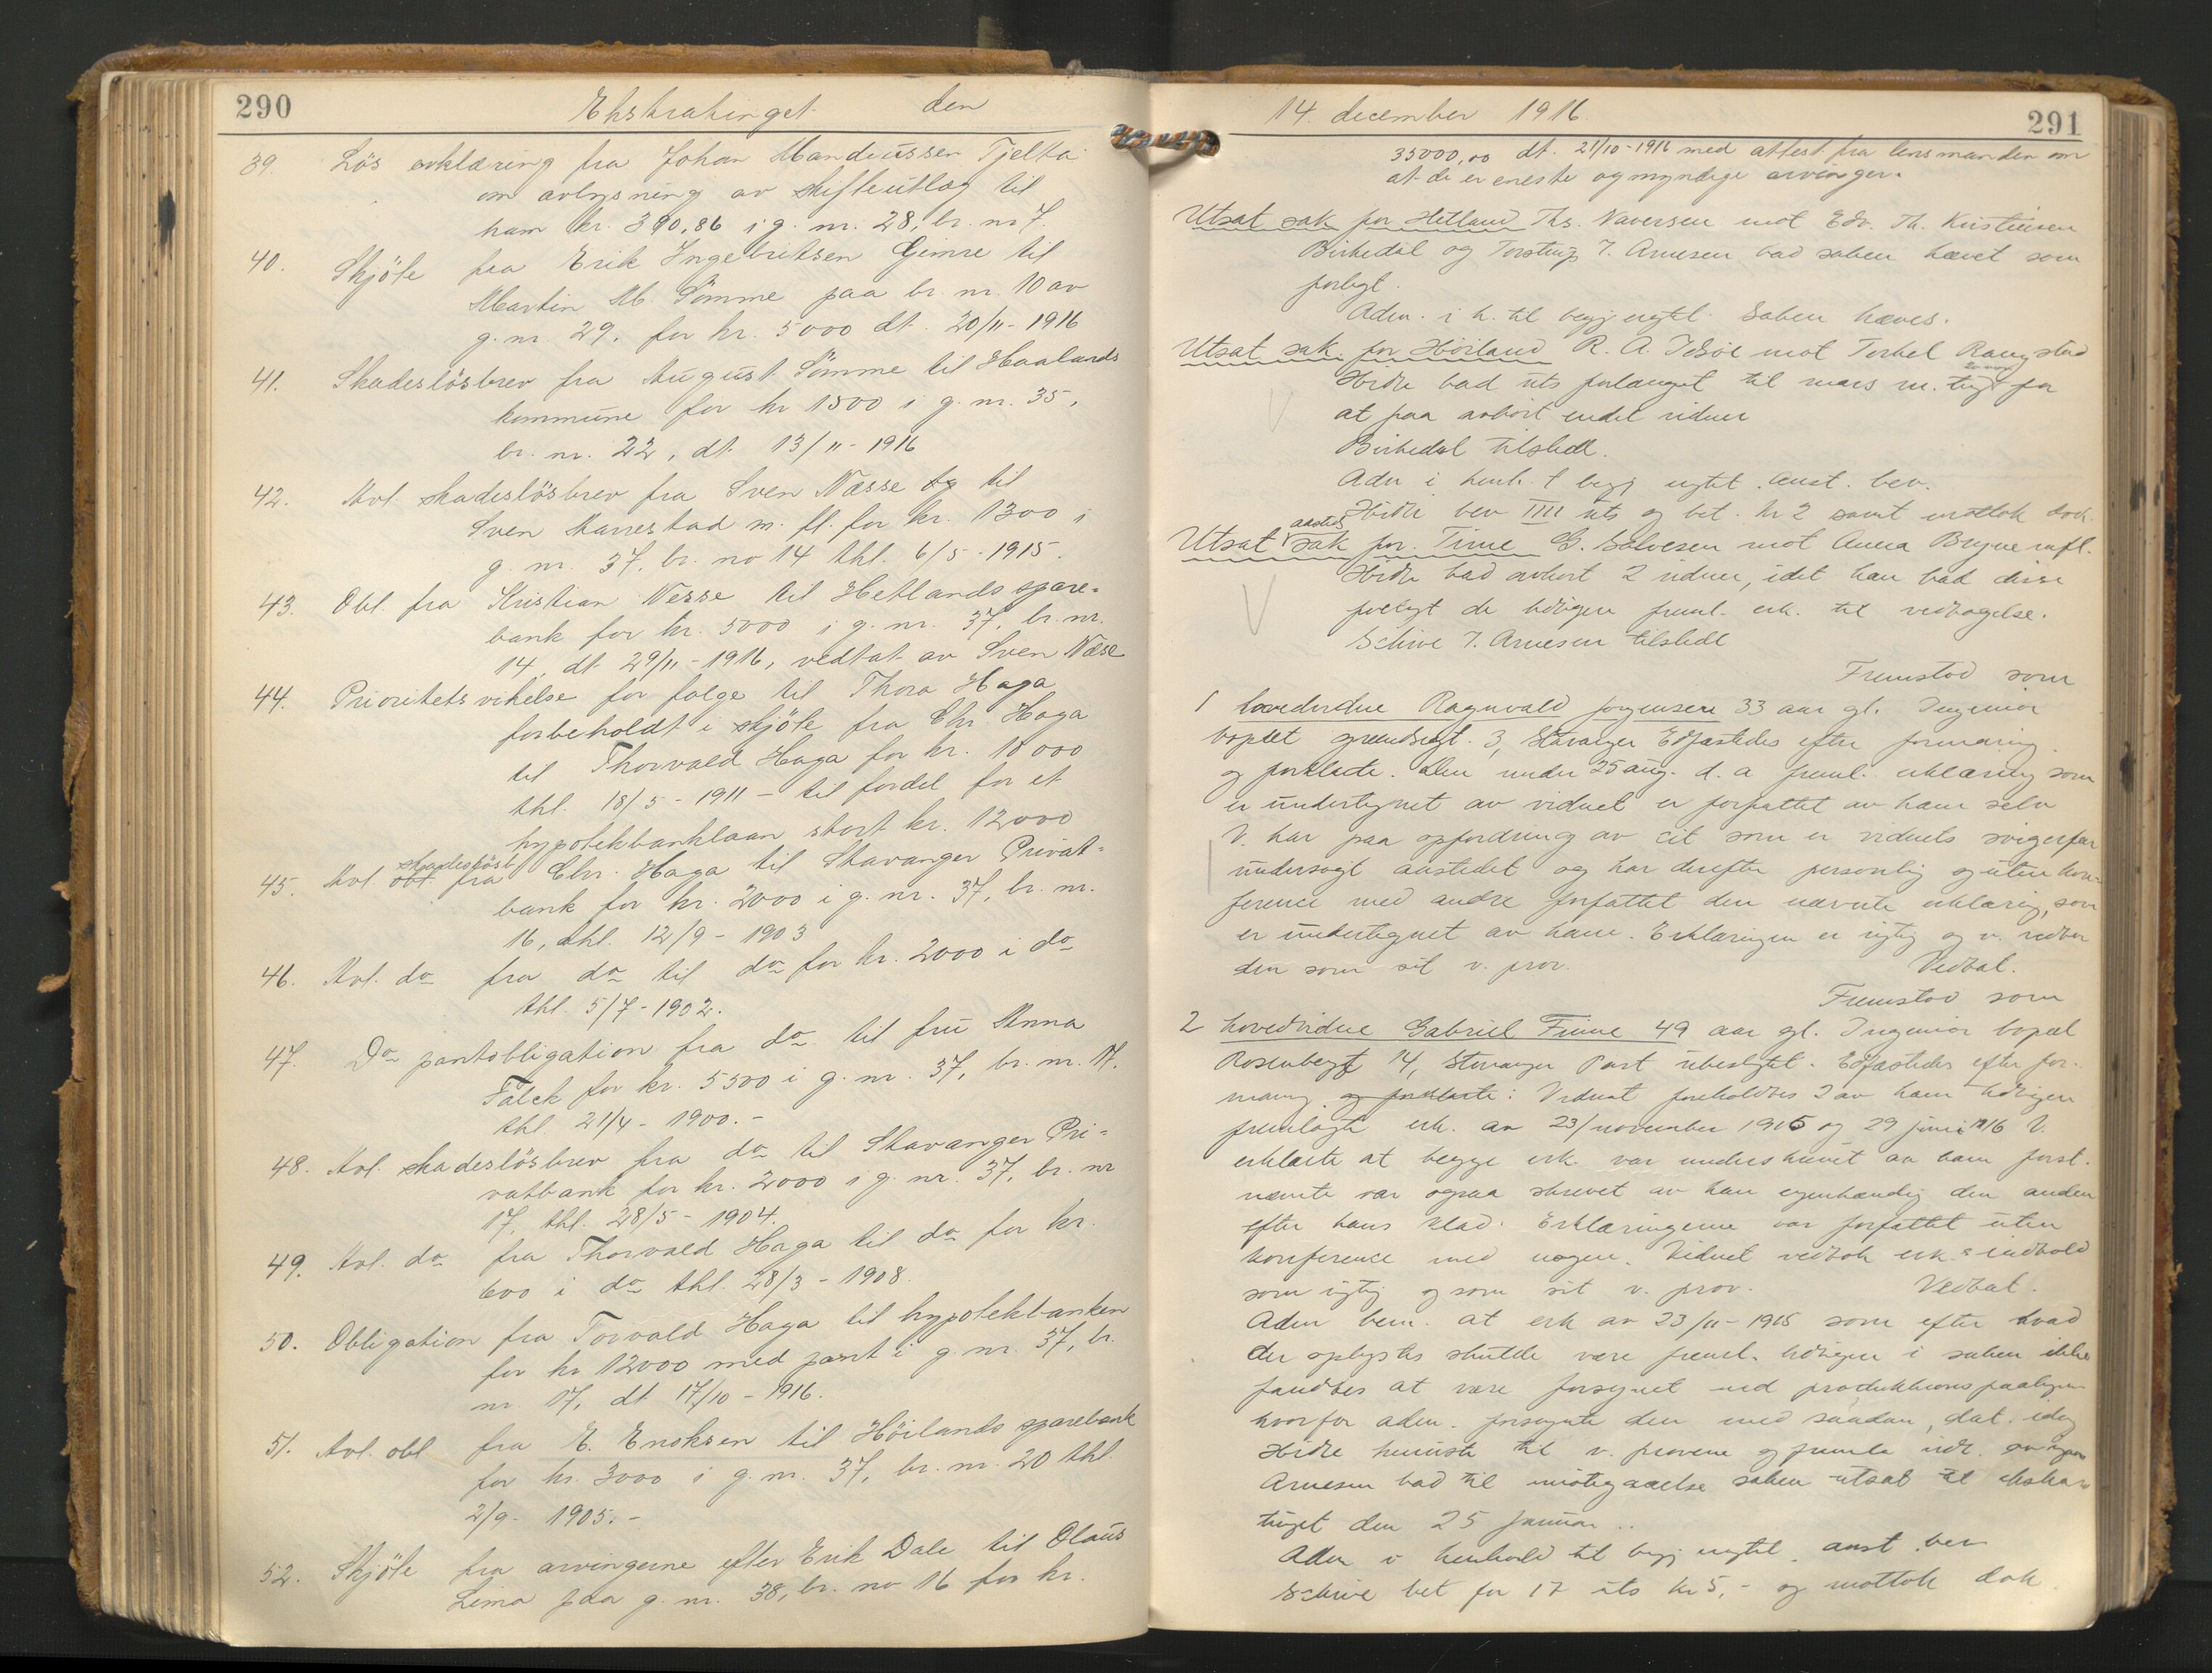 290
Ekstratinget den
39. Lös erklæring fra Johan Mandiussen Tjelta
om avlysning av skifteutlæg til
ham kr. 390,86 i g. nr. 28, br. nr 7.
40. Skjöte fra Erik Ingebretsen Gimre til
Martin M. Sömme paa br. nr. 10 av
g. nr. 29, for kr. 5000 dt. 20/11-1916
41. Skadeslösbrev fra August Sömme til Haalands
kommune for kr 1500 i g. nr. 35,
br. nr. 22, dt. 13/11-1916
42. Avl. skadeslösbrev fra Sven Næsse til
Sven Harrestad m. fl. for kr. 1300 i
g. nr. 37, br. no 14 thl. 6/5-1915.
43. Obl. fra Kristian Nesse til Hetlands spare-
bank for kr. 5000 i g. nr. 37, br. nr.
14, dt 29/11-1916, vedtat av Sven Næse
44. Prioritetsvikelse for følge til Thora Haga
forbeholdt i skjöte fra Chr. Haga
til Thorvald Haga for kr. 10000
thl. 18/5-1911 - til fordel for et
hypotekbanklaan stort kr. 12000
45. Avl. obl. skadeslösb. fra Chr. Haga til Stavanger Privat-
bank for kr. 2000 i g. nr. 37, br. nr.
16, thl. 12/9-1903
46. Avl. do fra do til do for kr. 2000 i do
thl. 5/7-1902.
47. Do pantobligation fra do til fru Anna
Falck for kr. 5500 i g. nr. 37, br. nr. 17.
thl. 21/4-1900.-
48. Avl. skadeslösbrev fra do til Stavanger Pri-
vatbank for kr. 2000 i g. nr. 37, br. nr
17, thl. 28/5-1904.
49. Avl. do fra Thorvald Haga til do for kr.
600 i do thl. 28/3-1908.
50. Obligation fra Torvald Haga til hypotekbanken
for kr 12000 med pant i g. nr. 37, br.
nr. 17, dt 17/10-1916.
51. Avl. obl. fra E. Enoksen til Höilands sparebank
for kr. 3000 i g. nr. 37, br. nr. 20 thl.
2/9-1905.-
52. Skjöte fra arvingerne efter Erik Dale til Olaus
Lima paa g. nr. 38, br. no 16 for kr.
14. december 1916.
291
35000,00 dt. 21/10-1916 med attest fra lensmanden om
at de er eneste og myndige arvinger.
Utsat sak for Hetland Ths. Naversen mot Edv. Th. Kristiansen
Birkedal og Torstrup J. Arnesen bad saken hævet som
forligt.
Adm. i h. til begj. nytet. Saken hæves.
Utsat sak for Höiland R. A. Idsöe mot Torkel Rangstad
Hidle bad uts forlænget til mars m. tingt for
at faa avhört endel vidner
Birkedal tilstede.
Adm i henh. t begj nytet. Anst. bev.
Hidle bev IIII uts og bet. kr 2 samt mottok dok.
Utsat aasteds sak for Time G. Salvesen mot Anna Bryne mfl.
Hidle bad avhört 2 vidner, idet han bad disse
forelagt de tidligere freml. erk. til vedtagelse.
Schive J. Arnesen tilstede
Fremstod som
1 hovedvidne Ragnvald Jörgensen 33 aar gl. Ingeniör
bopæl 3, Stavanger Edfæstedes efter formaning
og forklarte. Den under 25 aug. d. a freml. erklæring som
er undertegnet av vidnet er forfattet av ham selv
V. har paa opfordring av Cit som er vidnets svigerfar
undersögt aastedet og har derefter personlig og uten kon-
ference med andre forfattet den nævnte erklæring, som
er undertegnet av ham. Erklæringen er rigtig og v. vedtar
den som sit v. prov. Vedtat.
Fremstod som
2 hovedvidne Gabriel Finne 49 aar gl. Ingeniör bopæl
Rosenbergt 14, Stavanger Part ubeslegtet. Edfæstedes efter for-
maning og forklarte: Vidnet foreholdtes 2 av ham tidligere
fremlagte erk. av 23/november 1915 og 29 juni 1916 V.
erklærte at begge erk. var underskrevet av ham först.
nævnte var ogsaa skrevet av ham egenhændig den anden
efter hans klad. Erklæringerne var forfattet uten
konference med nogen. Vidnet vedtok erk.s indhold
som rigtig og som sit v. prov. Vedtat.
Adm bem. at erk av 23/11-1915 som efter hvad
der oplystes skulde være freml. tidligere i saken ikke
fandtes at være forsynet med produktionspaategn.
hvorfor adm. forsynte den med saadan, dat. idag
Hidle henviste til v. provene og
Arnesen bad til imötegaaelse saken utsat til ekstra-
tinget den 25 januar..
Adm i henhold til begj nytet. anst. bev
Schive bet for 17 uts kr 5,- og mottok dok.